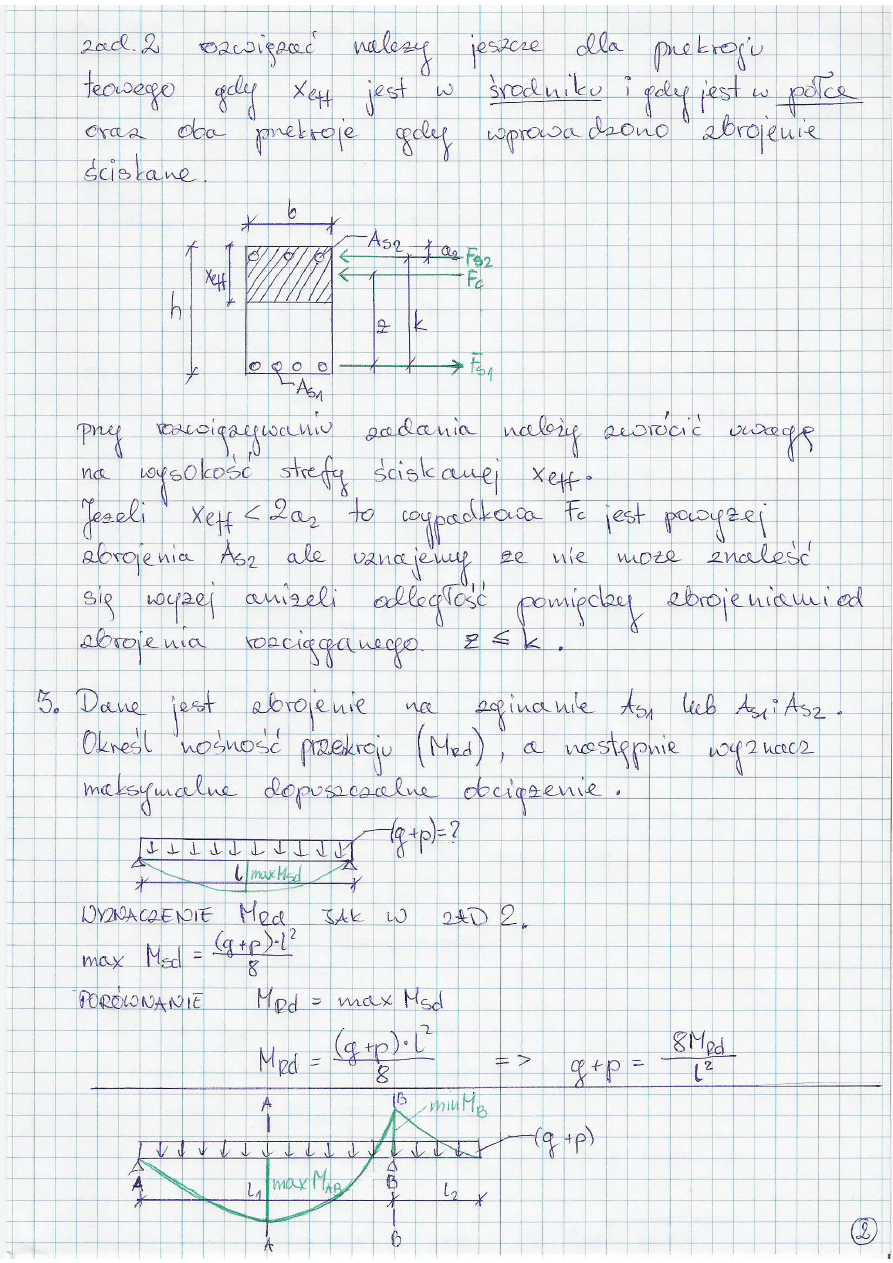 zad.2 rozwiązać należy jeszcze dla przekroju
teowego gdy xeff jest w środniku i gdy jest w półce
oraz oba przekroje gdy wprowadzono zbrojenie
ściskane.
b
As2
a2
Fs2
Fc
xeff
h
z
k
Fs1
As1
przy rozwiązywaniu zadania należy zwrócić uwagę
na wysokość strefy ściskanej xeff.
Jeżeli xeff < 2a2 to wypadkowa Fc jest powyżej
zbrojenia As2 ale uznajemy że nie może znaleść
się wyżej aniżeli odległość pomiędzy zbrojeniami od
zbrojenia rozciąganego. z ≤ k.
3. Dane jest zbrojenie na zginanie As1 lub As1 i As2.
Określ nośność przekroju (MRd), a następnie wyznacz
maksymalne dopuszczalne obciążenie.
(g+p)=?
l
max Msd
WYZNACZENIE MRd JAK W ZAD 2.
max Msd = (g+p)·l²/8
PORÓWNANIE MRd = max Msd
MRd = (g+p)·l²/8 => g+p = 8MRd/l²
A
B
min MB
(g+p)
A
l1
max MAB
B
l2
A
B
2